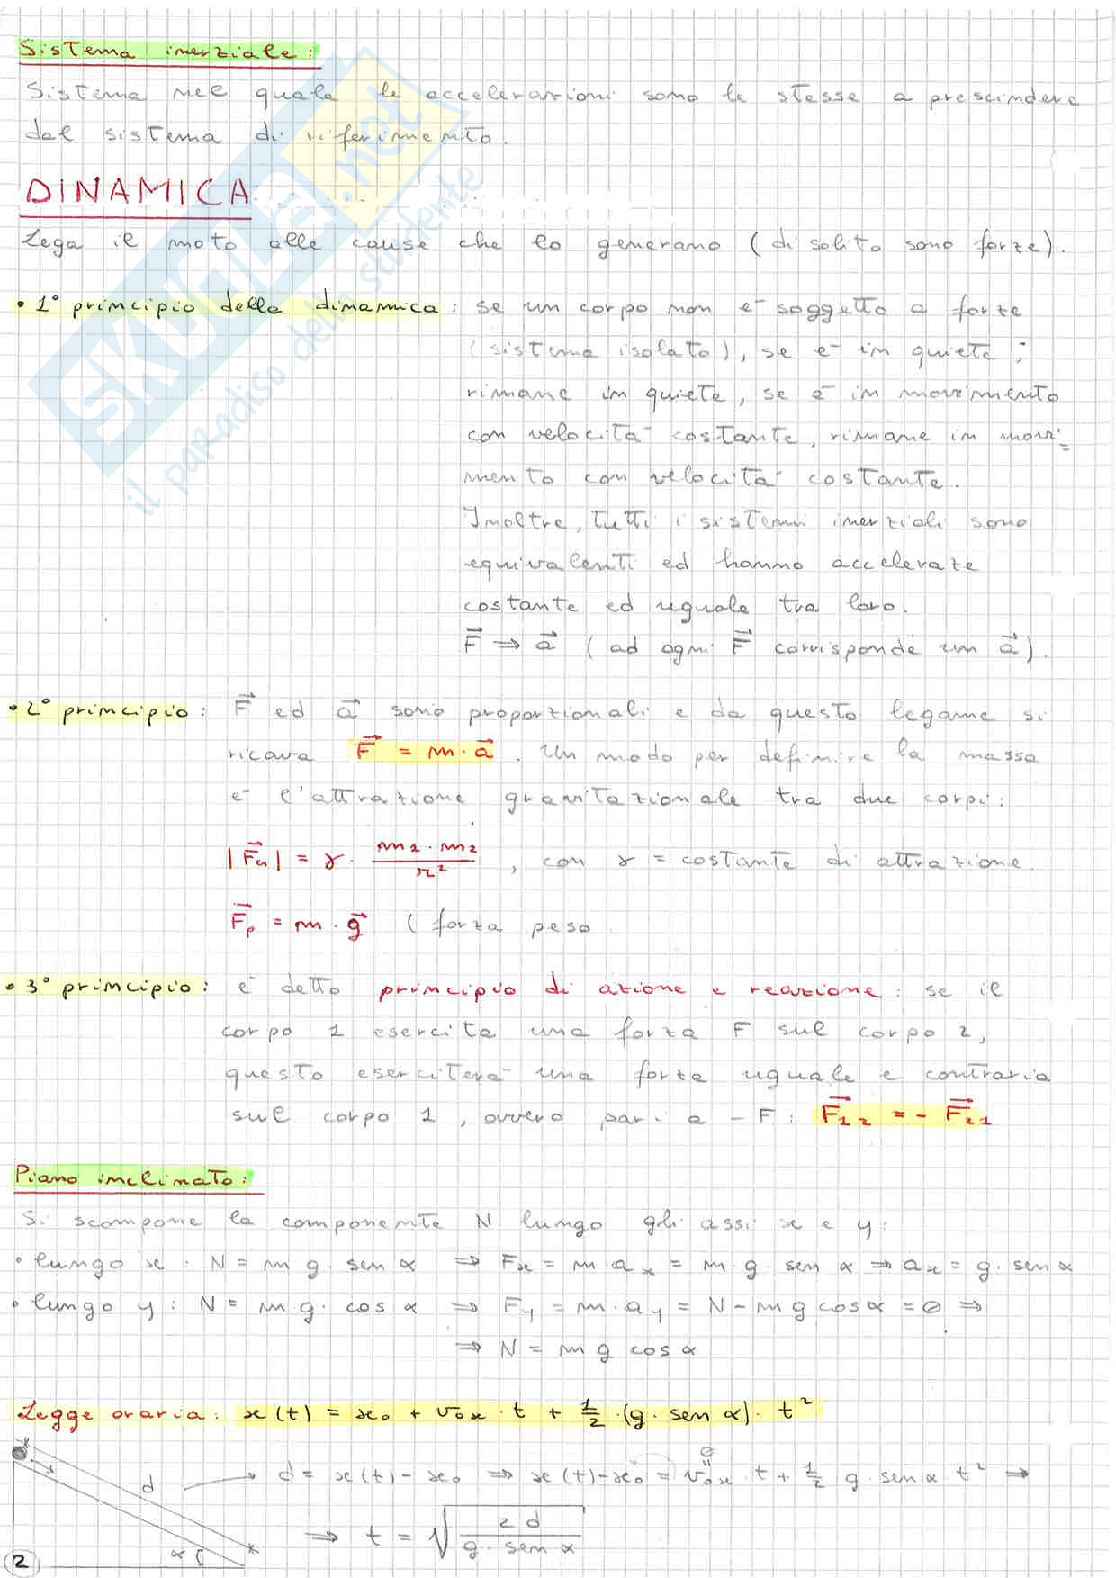 Sistema inerziale:
Sistema nel quale le accelerazioni sono le stesse a prescindere
dal sistema di riferimento.
DINAMICA
Lega il moto alle cause che lo generano (di solito sono forze).
• 1° principio della dinamica: se un corpo non è soggetto a forze
(sistema isolato), se è in quiete,
rimane in quiete, se è in movimento
con velocità costante, rimane in movi=
mento con velocità costante.
Inoltre, tutti i sistemi inerziali sono
equivalenti ed hanno accelerate
costante ed uguale tra loro.
F⃗ ⇒ a⃗ (ad ogni F⃗ corrisponde un a⃗).
• 2° principio: F⃗ ed a⃗ sono proporzionali e da questo legame si
ricava F⃗ = m · a⃗. Un modo per definire la massa
è l'attrazione gravitazionale tra due corpi:
|F⃗G| = γ · m2 · m2 / r², con γ = costante di attrazione.
F⃗p = m · g⃗ (forza peso
• 3° principio: è detto principio di azione e reazione: se il
corpo 1 esercita una forza F sul corpo 2,
questo eserciterà una forza uguale e contraria
sul corpo 1, ovvero pari a - F: F⃗12 = - F⃗21
Piano inclinato:
Si scompone la componente N lungo gli assi x e y:
• lungo x: N = m g · sen α ⇒ Fx = m ax = m g sen α ⇒ ax = g · sen α
• lungo y: N = m · g · cos α ⇒ Fy = m · ay = N - m g cos α = 0 ⇒
⇒ N = m g cos α
Legge oraria: x(t) = x0 + v0x · t + 1/2 · (g · sen α) · t²
d → d = x(t) - x0 ⇒ x(t) - x0 = v0x · t + 1/2 g · sen α t² →
0
⇒ t = √(2d / g · sen α)
α
2
SKUOLA.net
il paradiso dello studente